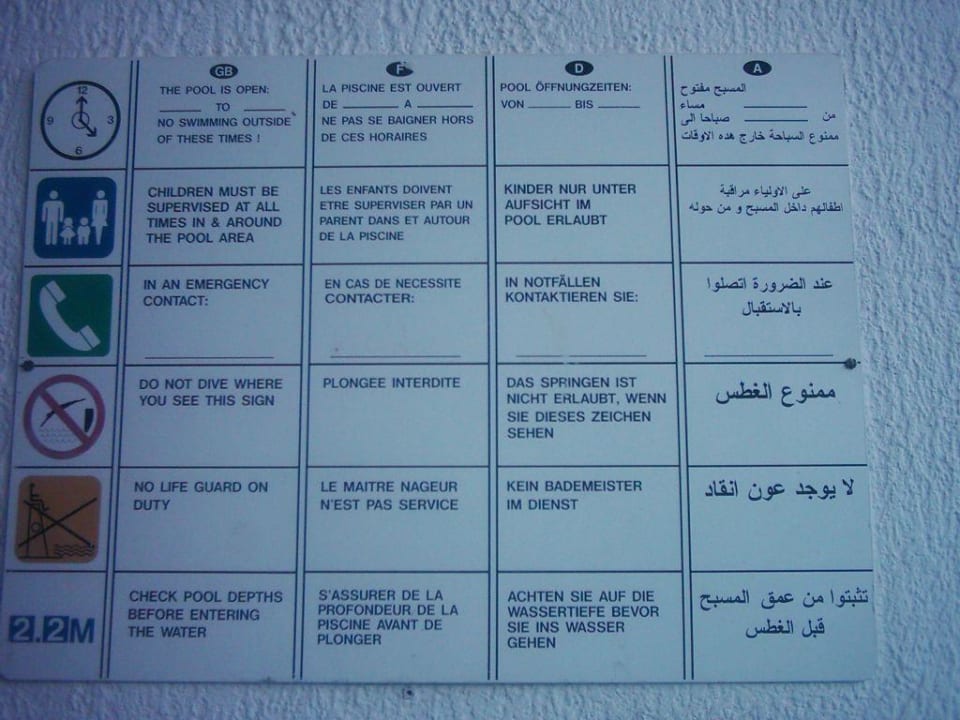 GB
THE POOL IS OPEN:
_____ TO _____
NO SWIMMING OUTSIDE
OF THESE TIMES !
F
LA PISCINE EST OUVERT
DE _____ A _____
NE PAS SE BAIGNER HORS
DE CES HORAIRES
D
POOL ÖFFNUNGZEITEN:
VON _____ BIS _____
A
المسبح مفتوح
_____ مساء
من _____ صباحا الى
ممنوع السباحة خارج هده الاوقات
12
9 3
6
CHILDREN MUST BE
SUPERVISED AT ALL
TIMES IN & AROUND
THE POOL AREA
LES ENFANTS DOIVENT
ETRE SUPERVISER PAR UN
PARENT DANS ET AUTOUR
DE LA PISCINE
KINDER NUR UNTER
AUFSICHT IM
POOL ERLAUBT
على الاولياء مراقبة
اطفالهم داخل المسبح و من حوله
IN AN EMERGENCY
CONTACT:
EN CAS DE NECESSITE
CONTACTER:
IN NOTFÄLLEN
KONTAKTIEREN SIE:
عند الضرورة اتصلوا
بالاستقبال
DO NOT DIVE WHERE
YOU SEE THIS SIGN
PLONGEE INTERDITE
DAS SPRINGEN IST
NICHT ERLAUBT, WENN
SIE DIESES ZEICHEN
SEHEN
ممنوع الغطس
NO LIFE GUARD ON
DUTY
LE MAITRE NAGEUR
N'EST PAS SERVICE
KEIN BADEMEISTER
IM DIENST
لا يوجد عون انقاد
2.2M
CHECK POOL DEPTHS
BEFORE ENTERING
THE WATER
S'ASSURER DE LA
PROFONDEUR DE LA
PISCINE AVANT DE
PLONGER
ACHTEN SIE AUF DIE
WASSERTIEFE BEVOR
SIE INS WASSER
GEHEN
تثبتوا من عمق المسبح
قبل الغطس